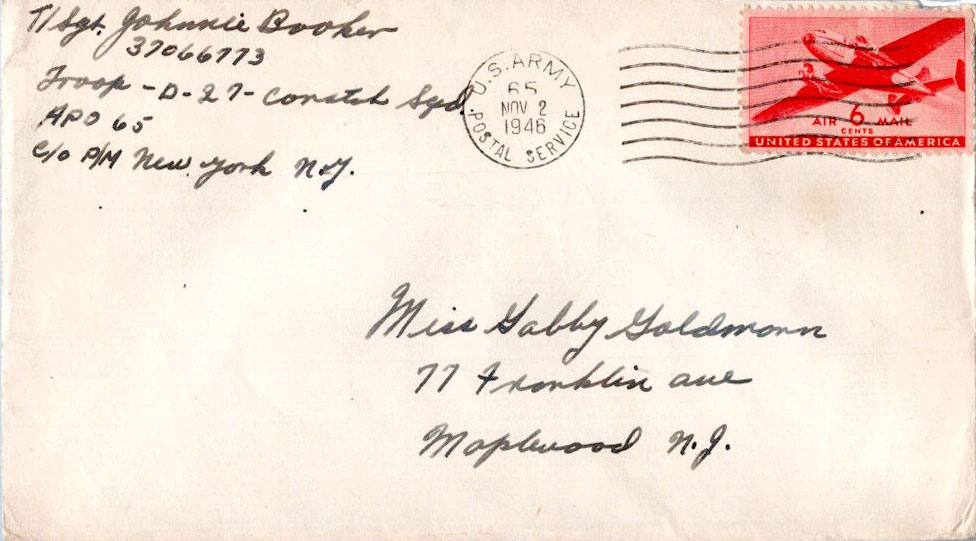 T/Sgt. Johnnie Booker
37066773
Troop - D - 27 - Constab Sqd.
APO 65
C/o P/M New York N.Y.
U.S. ARMY
65
NOV 2
1946
POSTAL SERVICE
AIR 6 MAIL
CENTS
UNITED STATES OF AMERICA
Miss Gabby Goldmann
77 Franklin ave
Maplewood N.J.